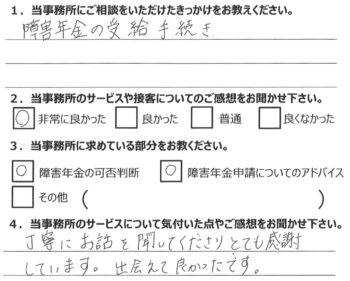 1．当事務所にご相談をいただけたきっかけをお教えください。
障害年金の受給手続き
2．当事務所のサービスや接客についてのご感想をお聞かせ下さい。
○ 非常に良かった □ 良かった □ 普通 □ 良くなかった
3．当事務所に求めている部分をお教えください。
○ 障害年金の可否判断 ○ 障害年金申請についてのアドバイス
□ その他 ( )
4．当事務所のサービスについて気付いた点やご感想をお聞かせ下さい。
丁寧にお話を聞いてくださりとても感謝
しています。出会えて良かったです。